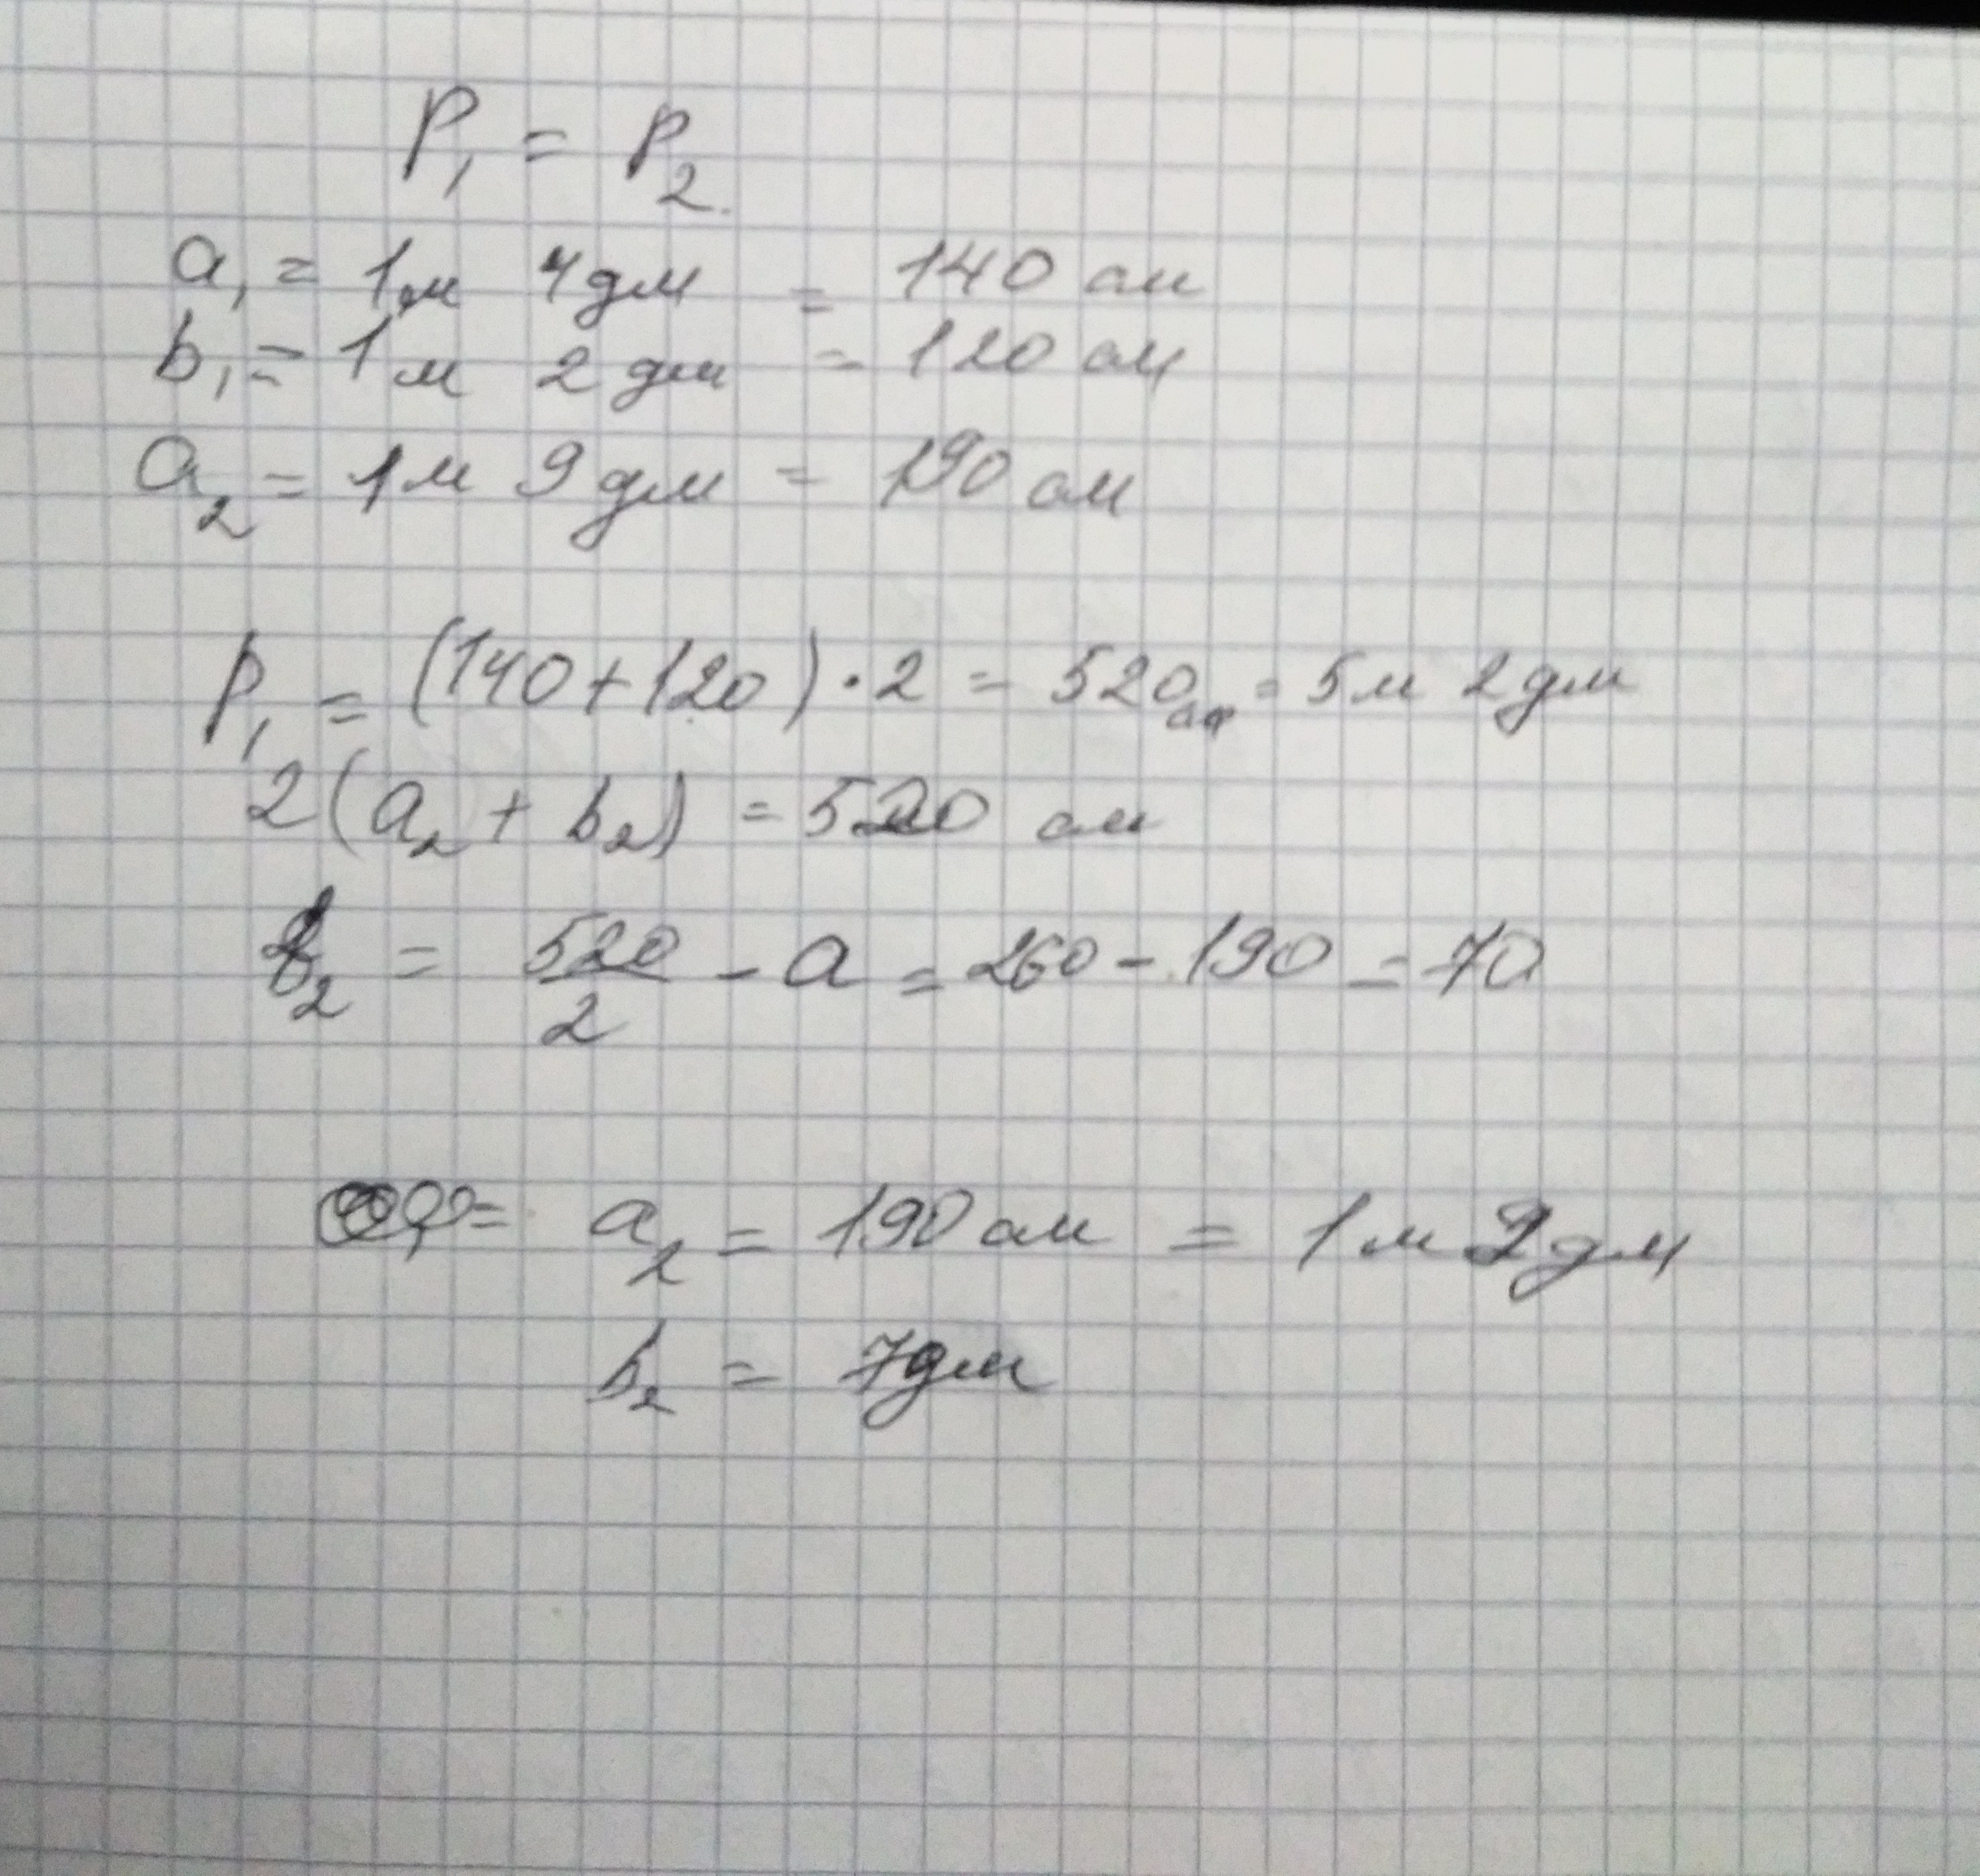 P₁ = P₂
a₁ = 1м 4дм = 140 см
b₁ = 1м 2дм = 120 см
a₂ = 1м 9дм = 190 см
P₁ = (140+120)·2 = 520см = 5м 2дм
2(a₂ + b₂) = 520 см
b₂ = 520/2 - a = 260 - 190 = 70
a₂ = 190 см = 1м 9дм
b₂ = 7дм